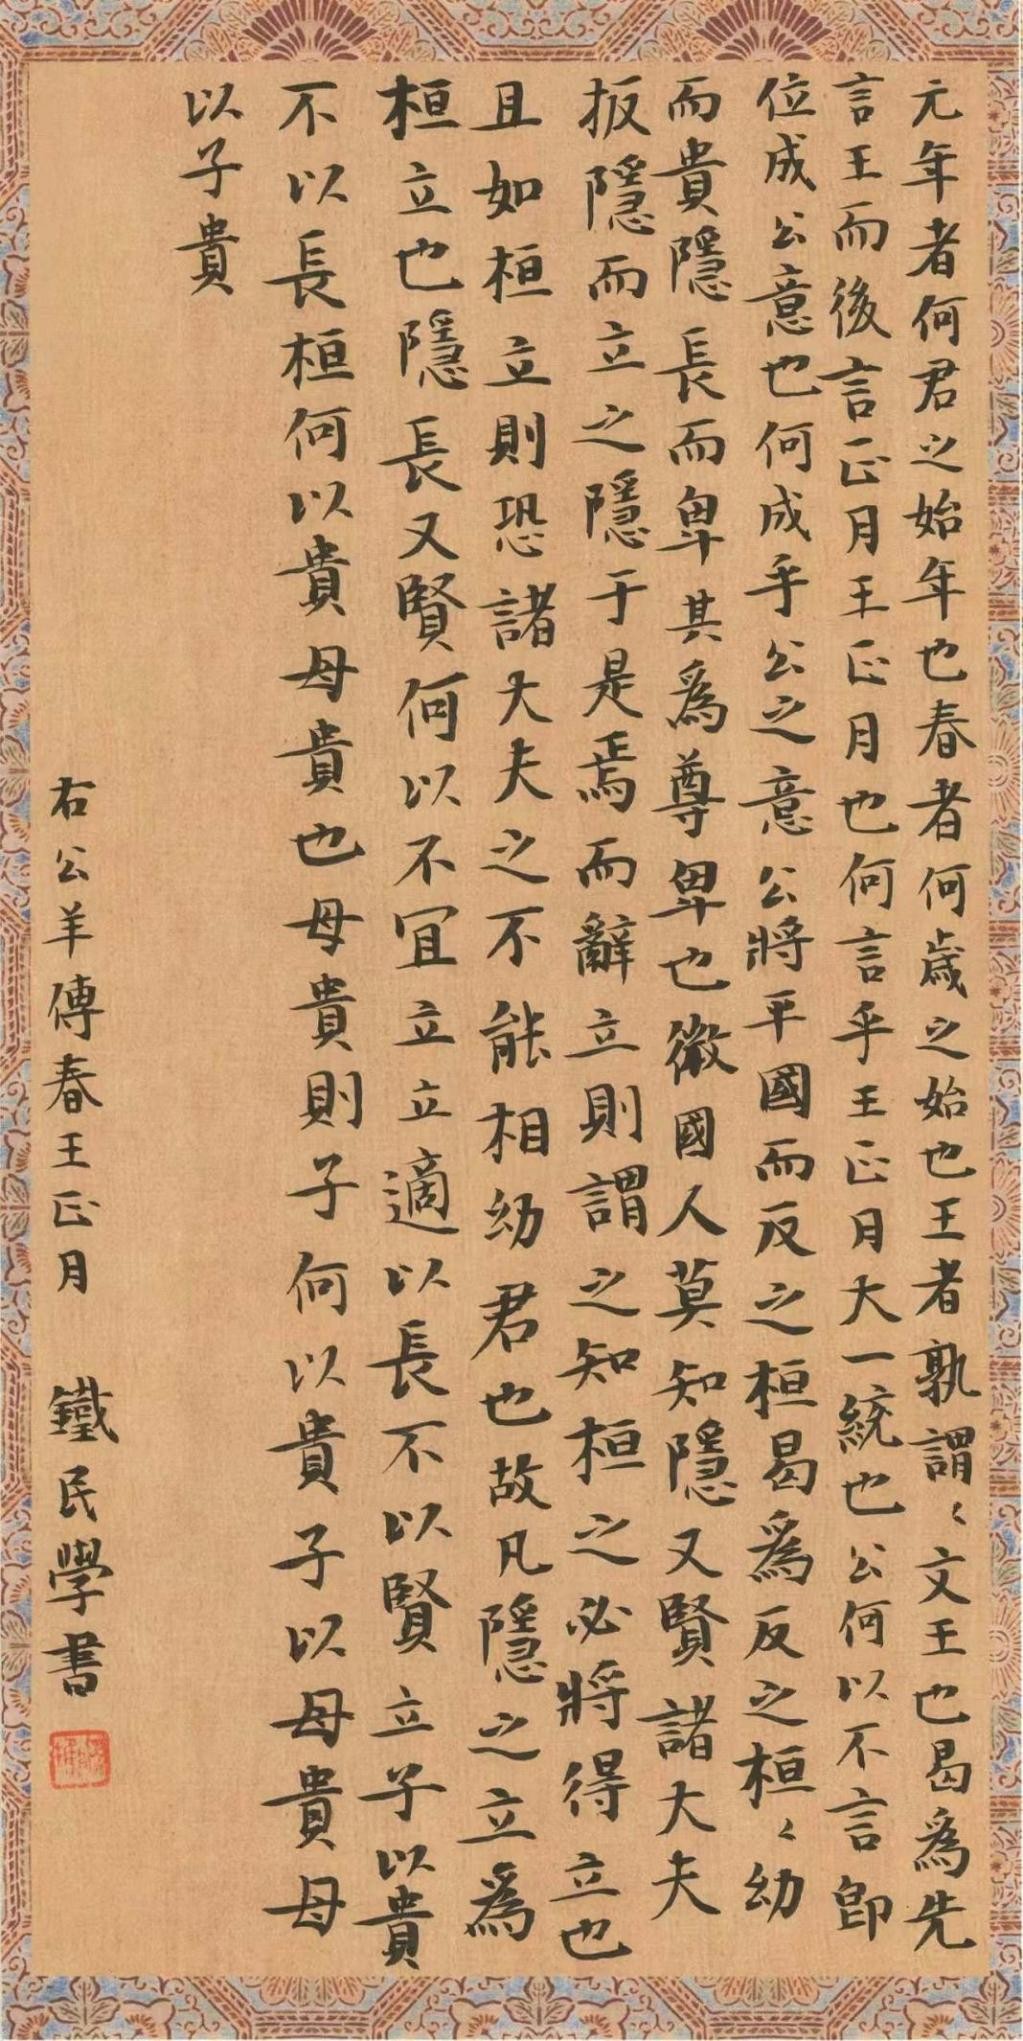 元年者何君之始年也春者何歲之始也王者孰謂〻文王也曷爲先
言王而後言正月王正月也何言乎王正月大一統也公何以不言卽
位成公意也何成乎公之意公將平國而反之桓曷爲反之桓〻幼
而貴隱長而卑其爲尊卑也微國人莫知隱又賢諸大夫
扳隱而立之隱于是焉而辭立則謂之知桓之必將得立也
且如桓立則恐諸大夫之不能相幼君也故凡隱之立爲
桓立也隱長又賢何以不宜立立適以長不以賢立子以貴
不以長桓何以貴母貴也母貴則子何以貴子以母貴母
以子貴
右公羊傳春王正月 鐵民學書